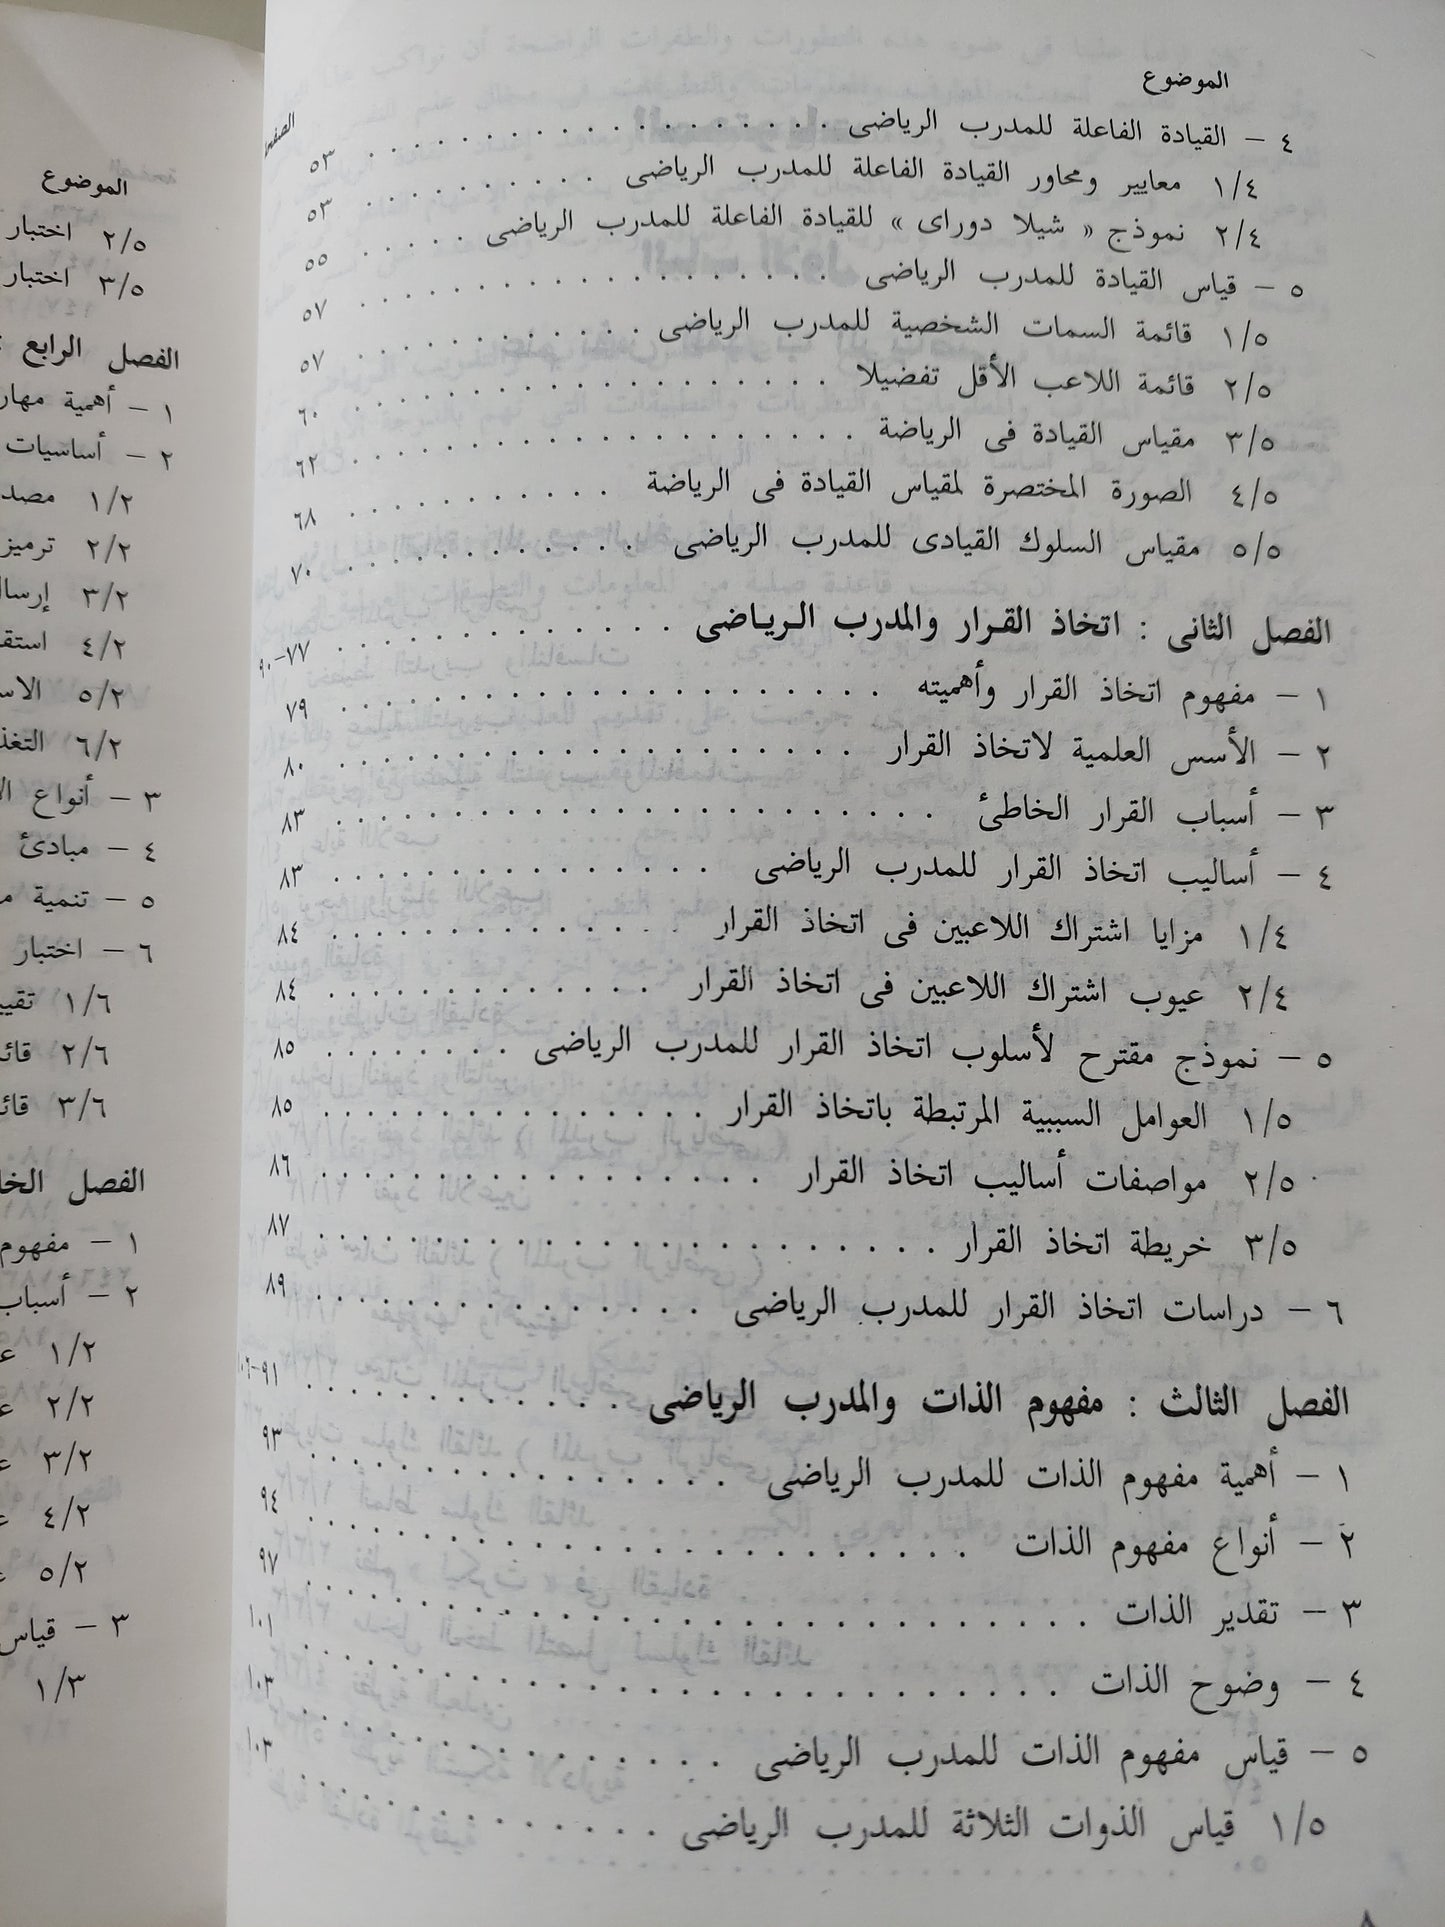 الموضوع الصفحة
٤ - القيادة الفاعلة للمدرب الرياضى . . . . . . . . ٥٣
١/٤ معايير ومحاور القيادة الفاعلة للمدرب الرياضى . . . . . . . . ٥٣
٢/٤ نموذج « شيلا دوراى » للقيادة الفاعلة للمدرب الرياضى . . . . . ٥٥
٥ - قياس القيادة للمدرب الرياضى . . . . . . . . ٥٧
١/٥ قائمة السمات الشخصية للمدرب الرياضى . . . . . . . . ٥٧
٢/٥ قائمة اللاعب الأقل تفضيلا . . . . . . . . ٦٠
٣/٥ مقياس القيادة فى الرياضة . . . . . . . . ٦٢
٤/٥ الصورة المختصرة لمقياس القيادة فى الرياضة . . . . . . . . ٦٨
٥/٥ مقياس السلوك القيادى للمدرب الرياضى . . . . . . . . ٧٠
الفصل الثانى : اتخاذ القرار والمدرب الرياضى . . . . . . . . ٧٧-٩٠
١ - مفهوم اتخاذ القرار وأهميته . . . . . . . . ٧٩
٢ - الأسس العلمية لاتخاذ القرار . . . . . . . . ٨٠
٣ - أسباب القرار الخاطئ . . . . . . . . ٨٣
٤ - أساليب اتخاذ القرار للمدرب الرياضى . . . . . . . . ٨٣
١/٤ مزايا اشتراك اللاعبين فى اتخاذ القرار . . . . . . . . ٨٤
٢/٤ عيوب اشتراك اللاعبين فى اتخاذ القرار . . . . . . . . ٨٤
٥ - نموذج مقترح لأسلوب اتخاذ القرار للمدرب الرياضى . . . . . . . . ٨٥
١/٥ العوامل السببية المرتبطة باتخاذ القرار . . . . . . . . ٨٥
٢/٥ مواصفات أساليب اتخاذ القرار . . . . . . . . ٨٦
٣/٥ خريطة اتخاذ القرار . . . . . . . . ٨٧
٦ - دراسات اتخاذ القرار للمدرب الرياضى . . . . . . . . ٨٩
الفصل الثالث : مفهوم الذات والمدرب الرياضى . . . . . . . . ٩١-١٠٦
١ - أهمية مفهوم الذات للمدرب الرياضى . . . . . . . . ٩٣
٢ - أنواع مفهوم الذات . . . . . . . . ٩٤
٣ - تقدير الذات . . . . . . . . ٩٧
٤ - وضوح الذات . . . . . . . . ١٠١
٥ - قياس مفهوم الذات للمدرب الرياضى . . . . . . . . ١٠٣
١/٥ قياس الذوات الثلاثة للمدرب الرياضى . . . . . . . . ١٠٣
الموضوع
٢/٥ اختبار
٣/٥ اختبار
الفصل الرابع
١ - أهمية
٢ - أساسيات
١/٢
٢/٢
٣/٢
٤/٢
٥/٢
٦/٢
٣ - أنواع
٤ - مبادئ
٥ - تنمية
٦ - اختبار
١/٦
٢/٦
٣/٦
الفصل
١ - مفهوم
٢ - أسباب
١/٢
٢/٢
٣/٢
٤/٢
٥/٢
٣ - قياس
١/٣